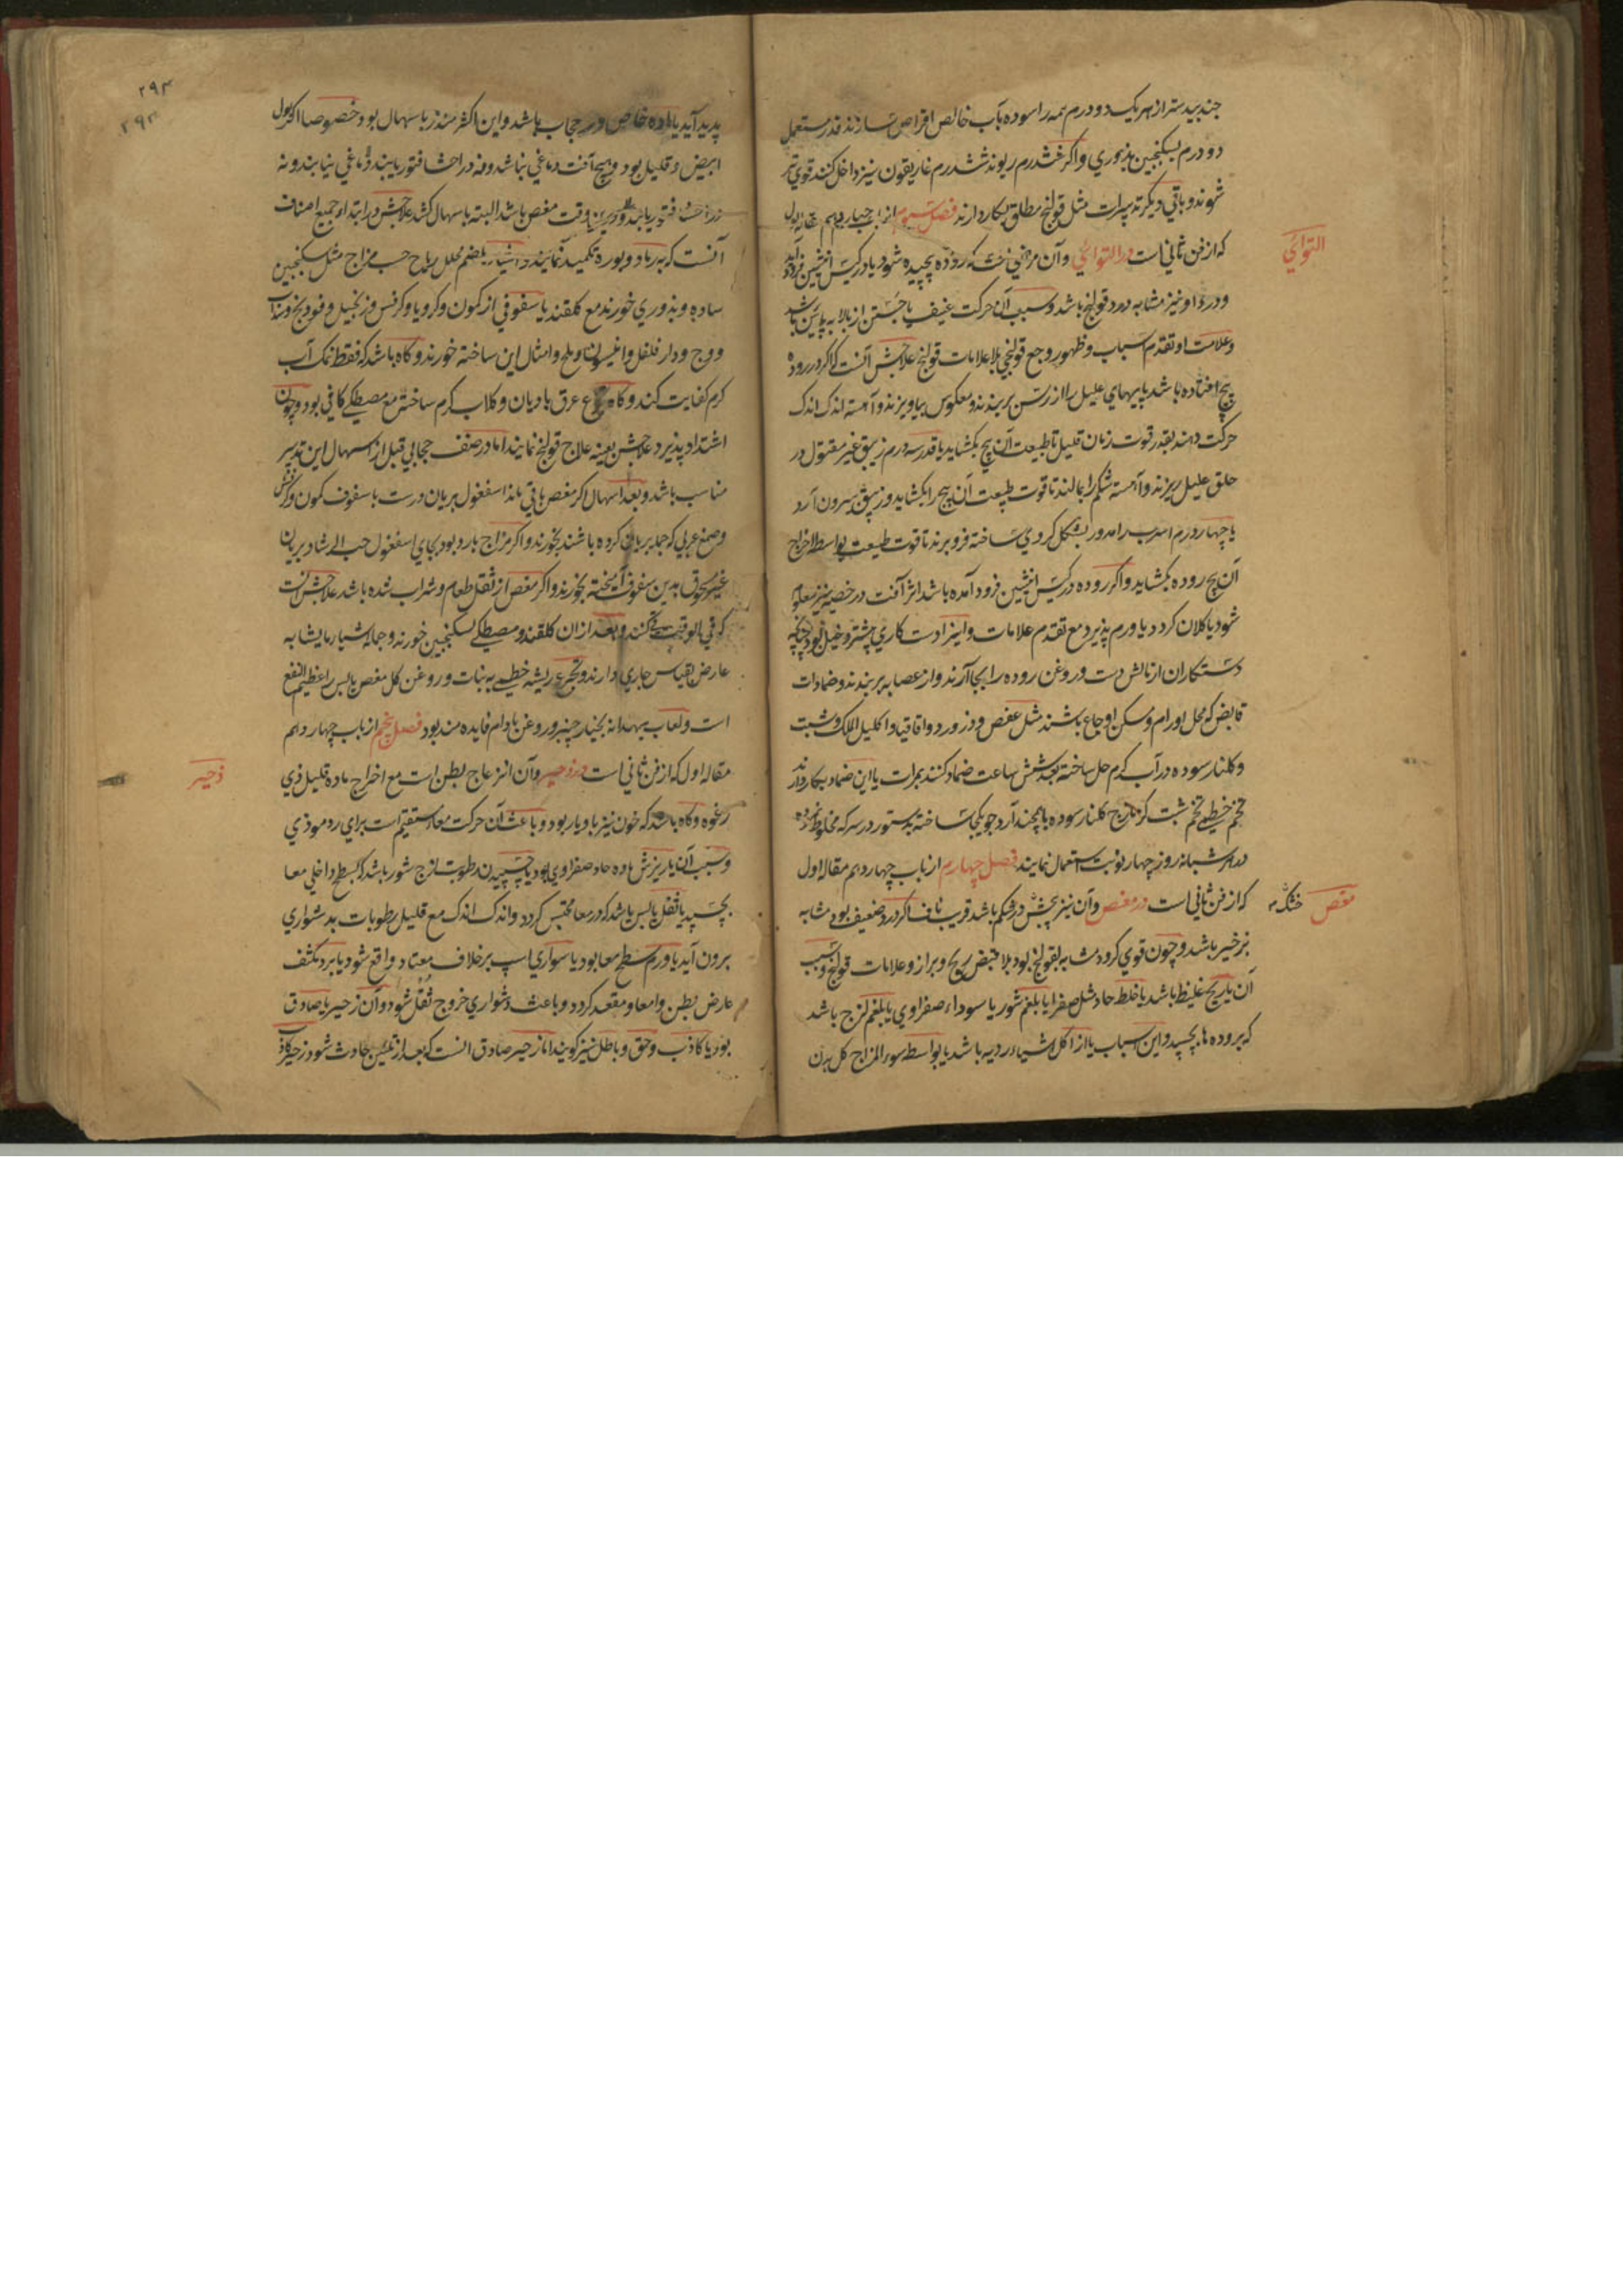 جندبیدستر از هر یک دو درم همه را سوده بآب خالص اقراص سازند قدر مستعمل
دو درم بسکنجبین بذوری و اگر هشت درم ریوند شش درم غاریقون نیز داخل کنند قوی تر
شوند و باقی دیگر تدبیرات مثل قولنج مطلق بکار دارند فصل سیوم از باب چهاردهم مقاله اول
التوائی
که از فن ثانی است در التوائی و آن مرضی است که روده پیچیده شود یا در کیس انثیین فرود آید
و درد او نیز مشابه درد قولنج باشد و سبب آن حرکت عنیف یا جستن از بالا به پایین باشد
و علامت او تقدم اسباب و ظهور وجع قولنجی بلا علامات قولنج علاجش آنست که اگر در روده
پیچ افتاده باشد پایهای علیل را از رسن بربندند و معکوس بیاویزند و آهسته اندک اندک
حرکت دهند بقدر قوت زمان قلیل تا طبیعت آن پیچ بکشاید یا قدر سه درم زیبق غیر مقتول در
حلق علیل ریزند و آهسته شکم را بمالند تا قوت طبیعت آن پیچ را بکشاید و زیبق بیرون آرد
یا چهار درم اسرب را مدور بشکل کروی ساخته فرو برند تا قوت طبیعت بواسطه اخراج
آن پیچ روده بکشاید و اگر روده در کیس انثیین فرود آمده باشد اثر آفت در خصیه نیز معلوم
شود یا کلان گردد یا ورم پذیرد مع تقدم علامات و اینرا دستکاری پیشتر دخیل بود چنانچه
دستکاران از مالش دست و روغن روده را بجا آرند و از عصابه بربندند و ضمادات
قابض که محلل اورام و مسکن اوجاع باشند مثل عفص و زرورد و اقاقیا و اکلیل الملک و شبت
و گلنار سوده در آب گرم حل ساخته بعد شش ساعت ضماد کنند بمرات یا این ضماد بکار دارند
تخم خطمی تخم شبت گزمازج گلنار سوده با همچند آرد جو یکجا ساخته بدستور در سرکه مخلوط کرده
در شبانه روز چهار نوبت استعمال نمایند فصل چهارم از باب چهاردهم مقاله اول
مغص
که از فن ثانی است در مغص و آن نیز پیچش در شکم باشد قریب ناف اگر درد ضعیف بود مشابه
بزحیر باشد و چون قوی گردد مشابه بقولنج بود بلا قبض ریح و براز و علامات قولنج و سبب
آن یا ریح غلیظ باشد یا خلط حاد مثل صفرا یا بلغم شور یا سوداء صفراوی یا بلغم لزج باشد
که بروده ها بچسپد و این اسباب یا از اکل اشیاء ردیه باشد یا بواسطه سوء المزاج کل بدن
۲۹۳
۲۹۳
پدید آید یا ماده خاص در حجاب باشد و این اکثر منذر باسهال بود خصوصا اگر بول
ابیض و قلیل بود و هیچ آفت دماغی نباشد و نه در احشا فتور یابند دماغی نیابند و نه
در احشا فتور یابند و درین وقت مغص باشد البته باسهال کشد علاجش در ابتداء جمیع اصناف
آنست که برماد و بوره تکمید نمایند و اشیاء هضم محلل ریاح حسب مزاج مثل سکنجبین
ساده و بذوری خورند مع گلقند یا سفوفی از کمون و کرویا و کرفس و زنجبیل و فودنج و سداب
و وج و دارفلفل و انیسون و ملح و امثال این ساخته خورند و گاه باشد که فقط نمک آب
گرم کفایت کند و گاه عرق بادیان و گلاب گرم ساخته مع مصطکی کافی بود و چون
اشتداد پذیرد علاجش بعینه علاج قولنج نمایند اما در صنف حجابی قبل از اسهال این تدبیر
مناسب باشد و بعد اسهال اگر مغص باقی ماند اسفغول بریان درست با سفوف کمون و کرفس
و صمغ عربی که جدا بریان کرده باشند بخورند و اگر مزاج بارد بود بجای اسفغول حب الرشاد بریان
غیر مسحوق بدین سفوف آمیخته بخورند و اگر مغص از ثقل طعام و شراب شده باشد علاجش آنست
که فی الوقت قی کنند و بعد از آن گلقند و مصطکی بسکنجبین خورند و جمله اشیاء مایشابه
عارض بقیاس جاری دارند و تجرع ریشه خطمی به نبات و روغن گل مغص یابس را عظیم النفع
است و لعاب بهدانه بخیار چنبر و روغن بادام فایده مند بود فصل پنجم از باب چهاردهم
زحیر
مقاله اول که از فن ثانی است در زحیر و آن انزعاج بطن است مع اخراج ماده قلیل ذی
رغوه و گاه باشد که خون نیز با و یار بود و باعث آن حرکت معاء مستقیم است برای رد موذی
و سبب آن یا ریزش ماده حاد صفراوی بود یا چسپیدن رطوبت لزج شور باشد که بسطح داخلی معا
بچسپد یا ثفل یابس باشد که در معا محتبس گردد و اندک اندک مع قلیل رطوبات بدشواری
برون آید یا ورم سطح معا بود یا سواری اسپ برخلاف معتاد واقع شود یا برد مکثف
عارض بطن و امعا و مقعد گردد و باعث دشواری خروج ثفل شود و آن زحیر یا صادق
بود یا کاذب و حق و باطل نیز گویند اما زحیر صادق آنست که بعد از تلیین حادث شود زحیر کاذب